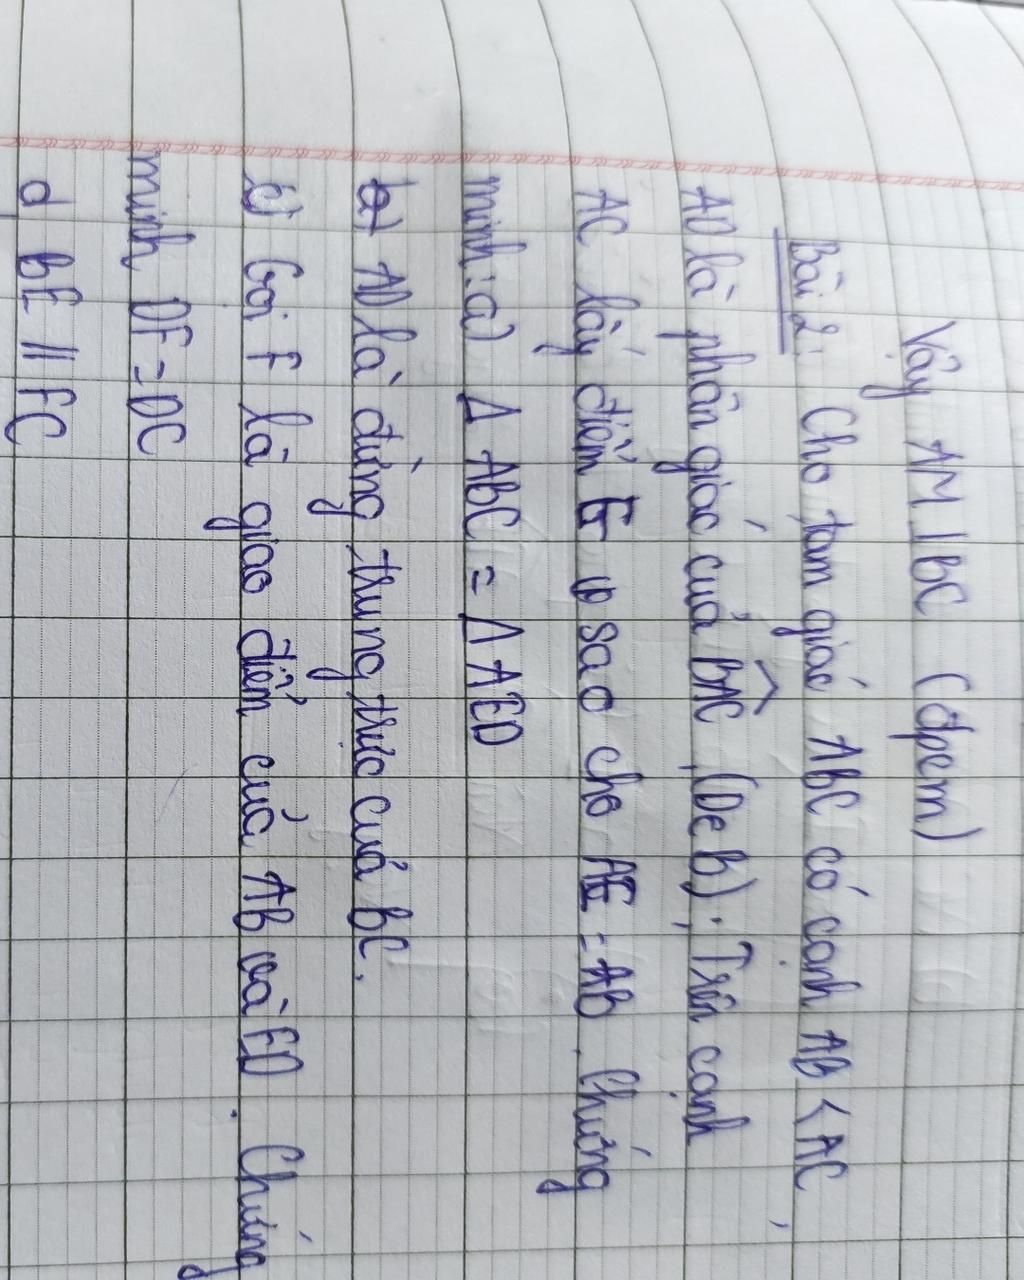 Vậy AM ⊥ BC (đpcm)
Bài 2: Cho tam giác ABC có cạnh AB < AC,
AD là phân giác của BAC, (De B). Trên cạnh
AC lấy điểm E sao cho AE = AB. Chứng
minh: a) Δ ABC = Δ AED
b) AD là đừng trung trực của BC.
c) Gọi F là giao điểm của AB và ED. Chứng
minh DF = DC
d BE // FC